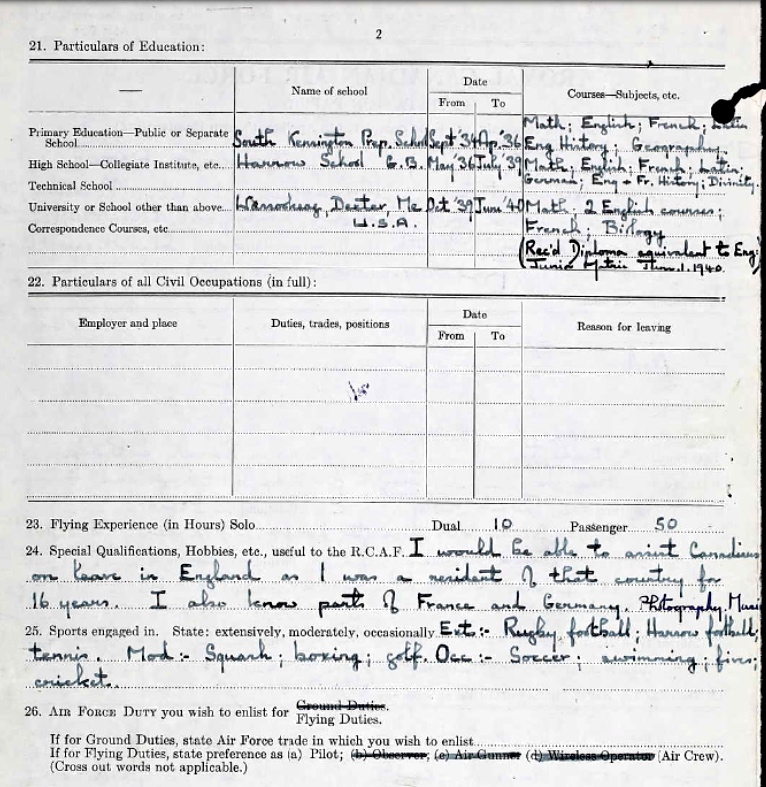 2
21. Particulars of Education:
Name of school
Date
From To
Courses—Subjects, etc.
Math; English; French; Latin
Primary Education—Public or Separate School South Kensington Prep. School Sept '34 Ap. '36 Eng History; Geography.
High School—Collegiate Institute, etc. Harrow School G.B. May '36 July '39 Math; English; French; Latin;
Technical School German; Eng + Fr. History; Divinity.
University or School other than above Dexter, Me Oct '39 June '40 Math; 2 English courses;
Correspondence Courses, etc. U.S.A. French; Biology
(Rec'd Diploma equivalent to Eng
Junior Matric June 1. 1940.
22. Particulars of all Civil Occupations (in full):
Employer and place
Duties, trades, positions
Date
From To
Reason for leaving
23. Flying Experience (in Hours) Solo Dual 10 Passenger 50
24. Special Qualifications, Hobbies, etc., useful to the R.C.A.F. I would be able to assist Canadians
on leave in England as I was a resident of that country for
16 years. I also know parts of France and Germany. Photography, Music
25. Sports engaged in. State: extensively, moderately, occasionally Ext:- Rugby football; Harrow football;
tennis. Mod:- Squash; boxing; golf. Occ:- Soccer; swimming; fives;
cricket.
26. AIR FORCE DUTY you wish to enlist for Ground Duties.
Flying Duties.
If for Ground Duties, state Air Force trade in which you wish to enlist
If for Flying Duties, state preference as (a) Pilot; (b) Observer; (c) Air Gunner (d) Wireless Operator (Air Crew).
(Cross out words not applicable.)